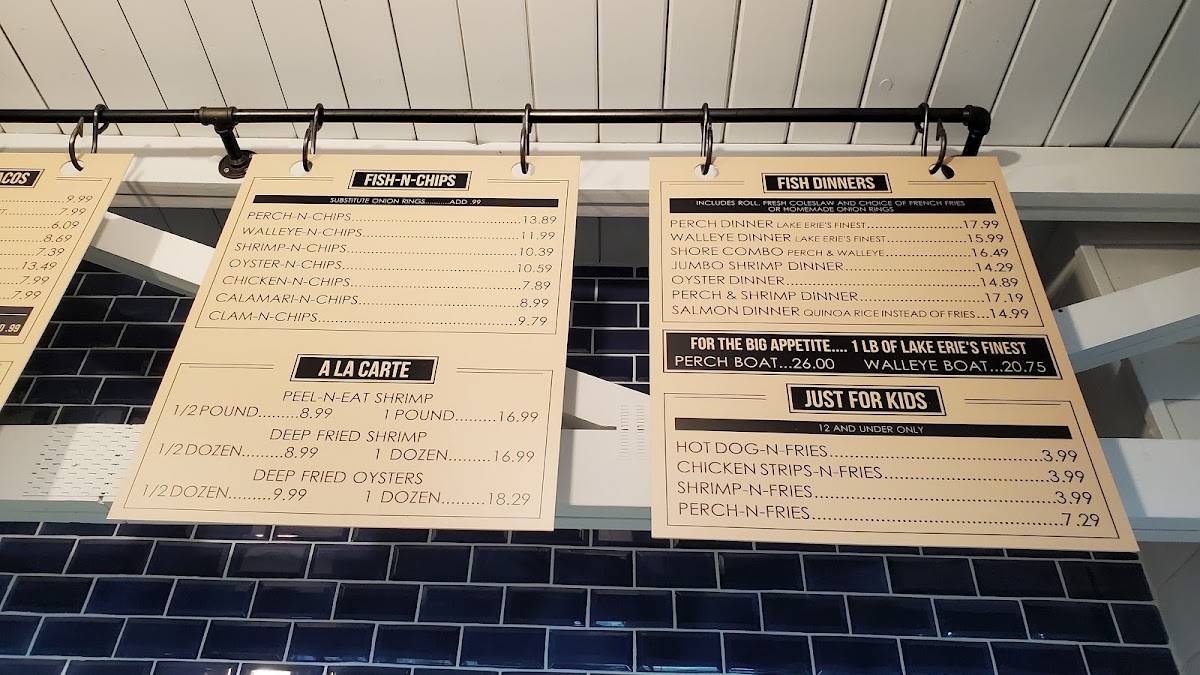 ACOS
9.99
7.99
6.09
8.69
7.39
13.49
7.99
7.99
.99
FISH-N-CHIPS
SUBSTITUTE ONION RINGS...........ADD .99
PERCH-N-CHIPS...............................13.89
WALLEYE-N-CHIPS...............................11.99
SHRIMP-N-CHIPS...............................10.39
OYSTER-N-CHIPS...............................10.59
CHICKEN-N-CHIPS...............................7.89
CALAMARI-N-CHIPS...............................8.99
CLAM-N-CHIPS...............................9.79
A LA CARTE
PEEL-N-EAT SHRIMP
1/2 POUND.........8.99 1 POUND.........16.99
DEEP FRIED SHRIMP
1/2 DOZEN.........8.99 1 DOZEN.........16.99
DEEP FRIED OYSTERS
1/2 DOZEN.........9.99 1 DOZEN.........18.29
FISH DINNERS
INCLUDES ROLL, FRESH COLESLAW AND CHOICE OF FRENCH FRIES
OR HOMEMADE ONION RINGS
PERCH DINNER LAKE ERIE'S FINEST.....................17.99
WALLEYE DINNER LAKE ERIE'S FINEST.................15.99
SHORE COMBO PERCH & WALLEYE.................16.49
JUMBO SHRIMP DINNER...........................14.29
OYSTER DINNER.....................................14.89
PERCH & SHRIMP DINNER.........................17.19
SALMON DINNER QUINOA RICE INSTEAD OF FRIES...14.99
FOR THE BIG APPETITE.... 1 LB OF LAKE ERIE'S FINEST
PERCH BOAT...26.00 WALLEYE BOAT...20.75
JUST FOR KIDS
12 AND UNDER ONLY
HOT DOG-N-FRIES.....................................3.99
CHICKEN STRIPS-N-FRIES.............................3.99
SHRIMP-N-FRIES.....................................3.99
PERCH-N-FRIES.....................................7.29